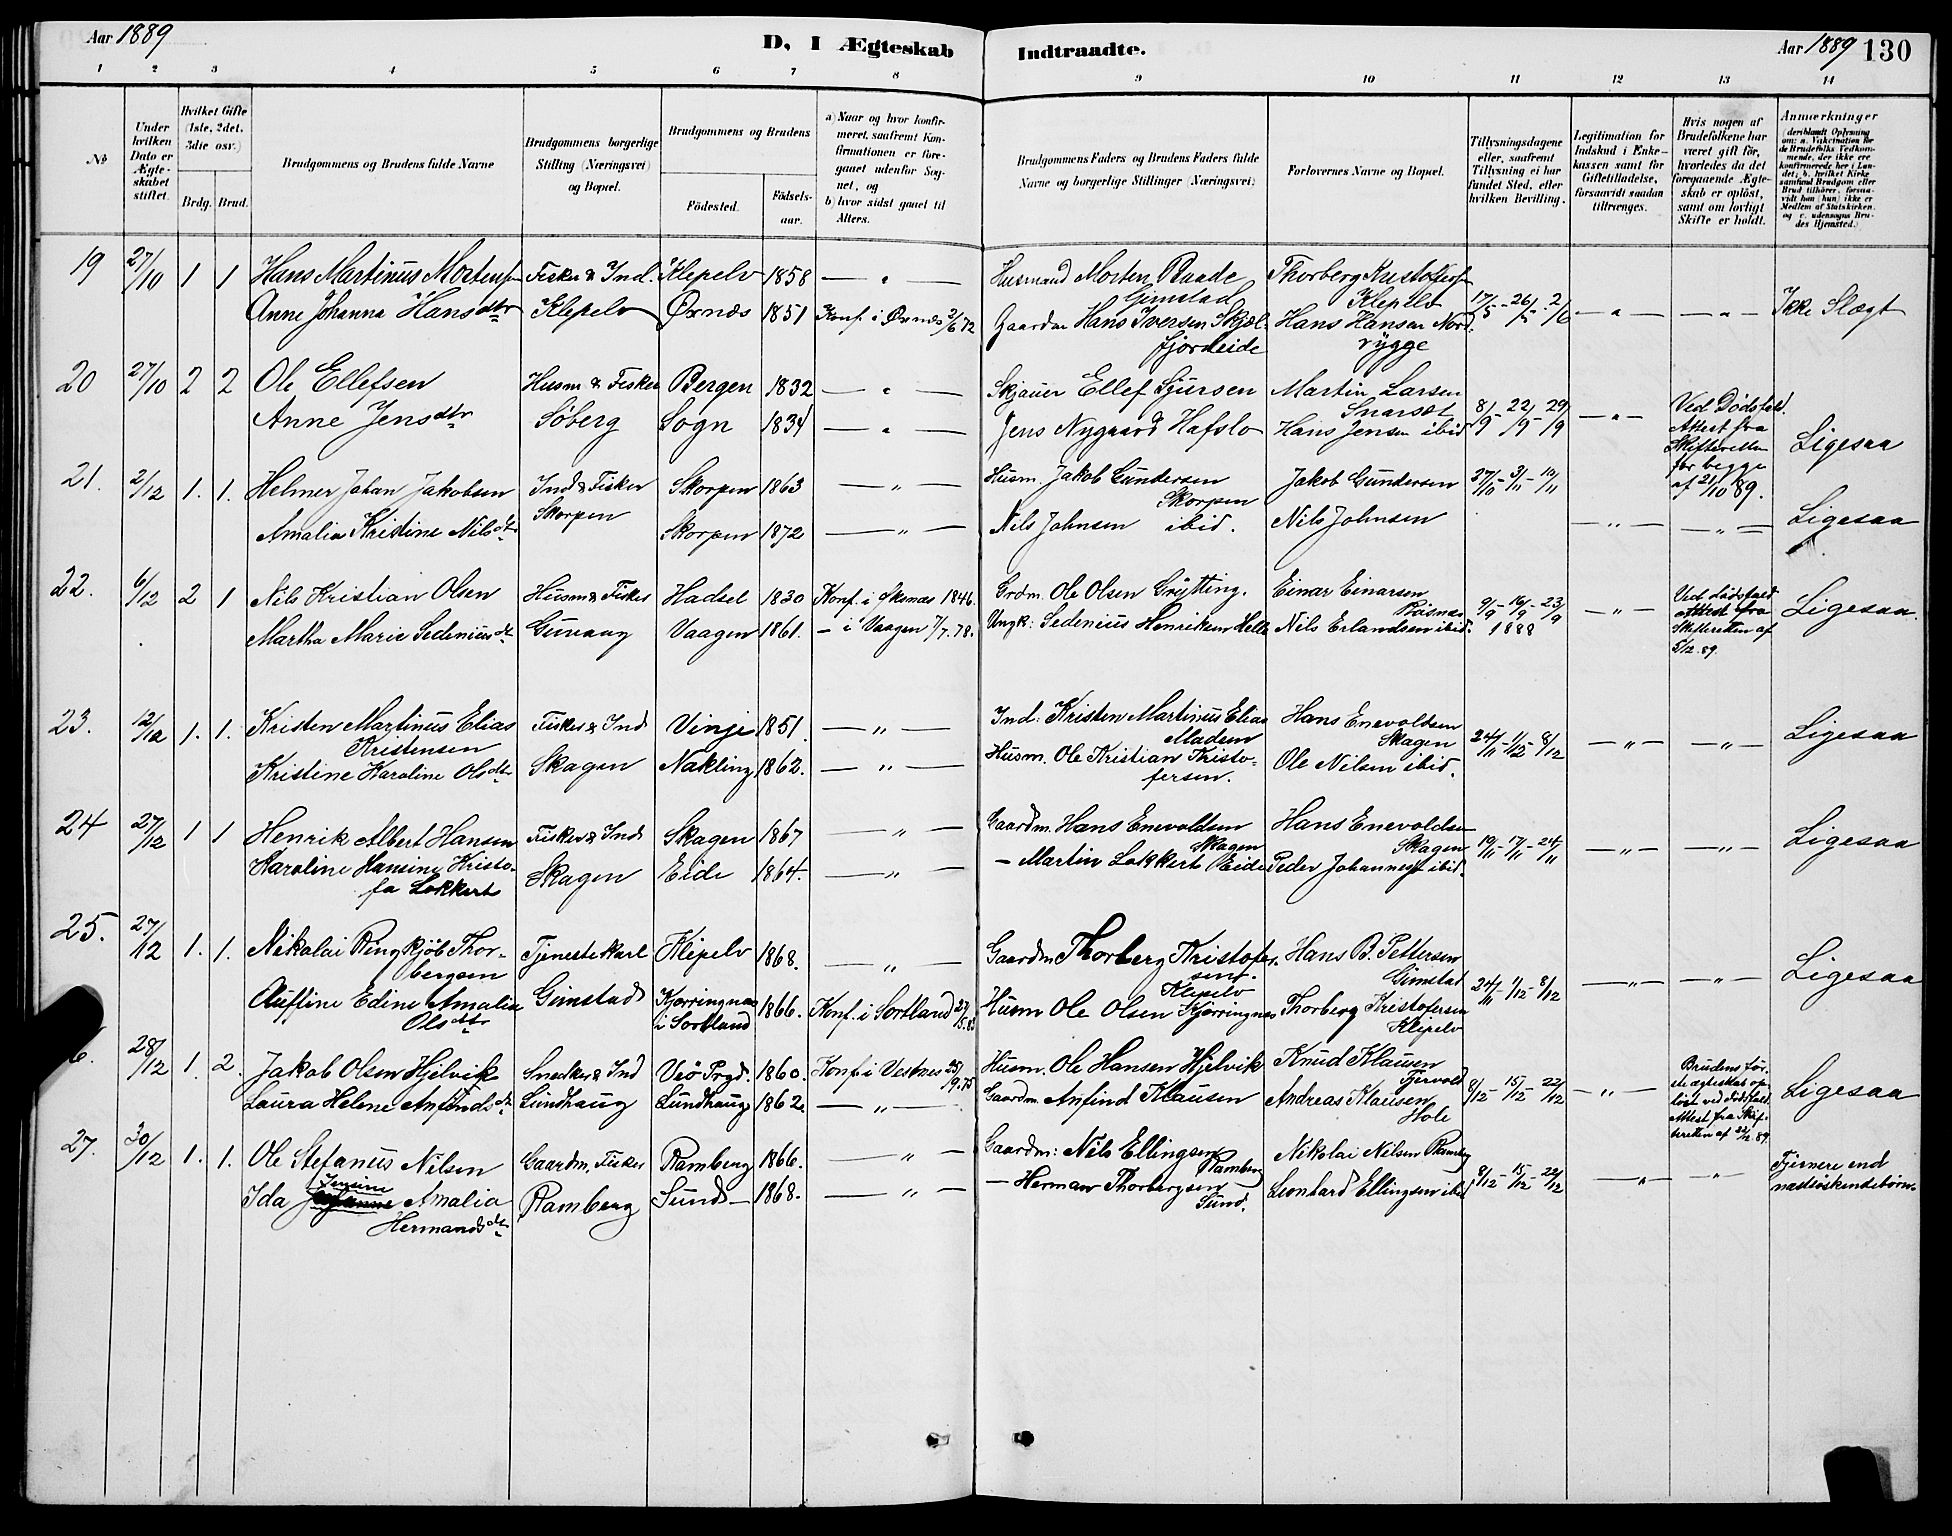 Aar 1889
D, I Ægteskab Indtraadte.
Aar 1889 130
1 2 3 4 5 6 7 8 9 10 11 12 13 14
No
Under hvilken Dato er Ægteskabet stiftet.
Hvilket Gifte (1ste, 2det, 3die osv.)
Brdg. Brud.
Brudgommens og Brudens fulde Navne
Brudgommens borgerlige Stilling (Næringsvei) og Bopæl.
Brudgommens og Brudens
Fødested. Fødselsaar.
a) Naar og hvor konfirmeret, saafremt Konfirmationen er foregaaet udenfor Sognet, og
b) hvor sidst gaaet til Alters.
Brudgommens Faders og Brudens Faders fulde Navne og borgerlige Stillinger (Næringsvei)
Forlovernes Navne og Bopæl.
Tillysningsdagene eller, saafremt Tillysning ei har fundet Sted, efter hvilken Bevilling.
Legitimation for Indskud i Enkekassen samt for Giftetilladelse, forsaavidt saadan tiltrænges.
Hvis nogen af Brudefolkene har været gift før, hvorledes da det foregaaende Ægteskab er opløst, samt om lovligt Skifte er holdt.
Anmerkninger (deriblandt Oplysning om: a. Vakcination for de Brudefolks Vedkommende, der ikke ere konfirmerede her i Landet; b. hvilket Kirkesamfund Brudgom eller Brud tilhører, forsaavidt han (hun) ikke er Medlem af Statskirken, og c. udensogns Brudes Hjemsted.)
19 27/10 1 1 Hans Martinus Mortensen Fisker & Ind. Klepelv 1858 — " — Husmand Morten Raade Gimstad Thorberg Kristofersen Klepelv 17/5 - 26/5 - 2/6 — " — — " — Ikke Slægt
Anne Johanna Hansdtr Klepelv Øxnæs 1851 Konf. i Øxnæs 2/6 72 Gaardm Hans Iversen Skjælfjordeide Hans Hansen Nordrygge
20 27/10 2 2 Ole Ellefsen Husm & Fisker Bergen 1832 — " — Skjauer Ellef Sjursen Martin Larsen Snarsæt 8/9 - 22/9 - 29/9 — " — Ved Dødsfald. Attest fra Skifteretten for begge af 21/10 89. Ligesaa
Anne Jensdtr Søberg Sogn 1834 — " — Jens Nygaard Hafslo Hans Jensen ibid
21. 2/12 1. 1. Helmer Johan Jakobsen Ind & Fisker Skorpen 1863 — " — Husm. Jakob Gundersen Skorpen Jakob Gundersen 27/10 - 3/11 - 10/11
Amalia Kristine Nilsdtr Skorpen Skorpen 1872 — " — Nils Johnsen ibid. Nils Johnsen — " — — " — Ligesaa
22. 6/12 2 1 Nils Kristian Olsen Husm & Fisker Hadsel 1830 Konf. i Øksnæs 1846. Grdm. Ole Olsen Grytting. Einar Einarsen 9/9 - 16/9 - 23/9 1888 — " — Ved Dødsfald Attest fra Skifteretten af 5/12.89. Ligesaa.
Martha Marie Sedeniusdtr Vaagen 1861. — i Vaagen 7/7.78. Ungk: Sedenius Henriksen Helle Nils Erlandsen ibid.
23. 12/12 1. 1. Kristen Martinus Elias Kristensen Fisker & Ind Vinje 1851 — " — Ind: Kristen Martinus Elias Madsen Hans Enevoldsen Skagen 24/11 - 1/12 - 8/12 — " — — " — Ligesaa
Kristine Karoline Olsdtr Skagen Nakling 1862. — " — Husm. Ole Kristian Kristofersen. Ole Nilsen ibid.
24 27/12 1 1 Henrik Albert Hansen Fisker & Ind Skagen 1867 — " — Gaardm. Hans Enevoldsen Skagen Hans Enevoldsen Skagen 10/11 - 17/11 - 24/11 — " — — " — Ligesaa
Karoline Hansine Kristofa Lokkert Skagen Eide 1864. — " — — Martin Lokkert Eide Peder Johannes ibid.
25. 27/12 1. 1. Nikolai Ringkjøb Thorbergsen Tjenestekarl Klepelv 1868. — " — Gaardm Thorberg Kristofersen. Klepelv Hans B. Pettersen Gimstad 24/11 - 1/12 - 8/12 — " — — " — Ligesaa
Edine Amalia Olsdtr Gimstad Kjørringnæs i Sortland 1866. Konf. i Sortland Husm Ole Olsen Kjørringnæs Thorberg Kristofersen Klepelv
6. 28/12 1. 2. Jakob Olsen Hjelvik Snedker & Ind Veø Prgd. 1860. Konf. i Vestnes Husm. Ole Hansen Hjelvik Knud Klausen Fjærvold 8/12 - 15/12 - 22/12 — " — Brudens første ægteskab opløst ved Dødsfald. Attest fra Skifteretten af 22/12 89. Ligesaa
Laura Helene Anfindsdtr Lundhaug Lundhaug 1862. — " — Gaardm. Anfind Klausen Andreas Klausen Hole
27. 30/12 1. 1. Ole Stefanus Nilsen Gaardm. Fisker Ramberg 1866. — " — Gaardm: Nils Ellingsen Ramberg Nikolai Nilsen Ramberg 8/12 - 15/12 - 22/12 — " — — " — Fjernere end næstsøskendebørn.
Ida Jensine Amalia Hermandsdtr Ramberg Sund — 1868. — " — — Herman Thorbergsen Sund. Leonhard Ellingsen ibid